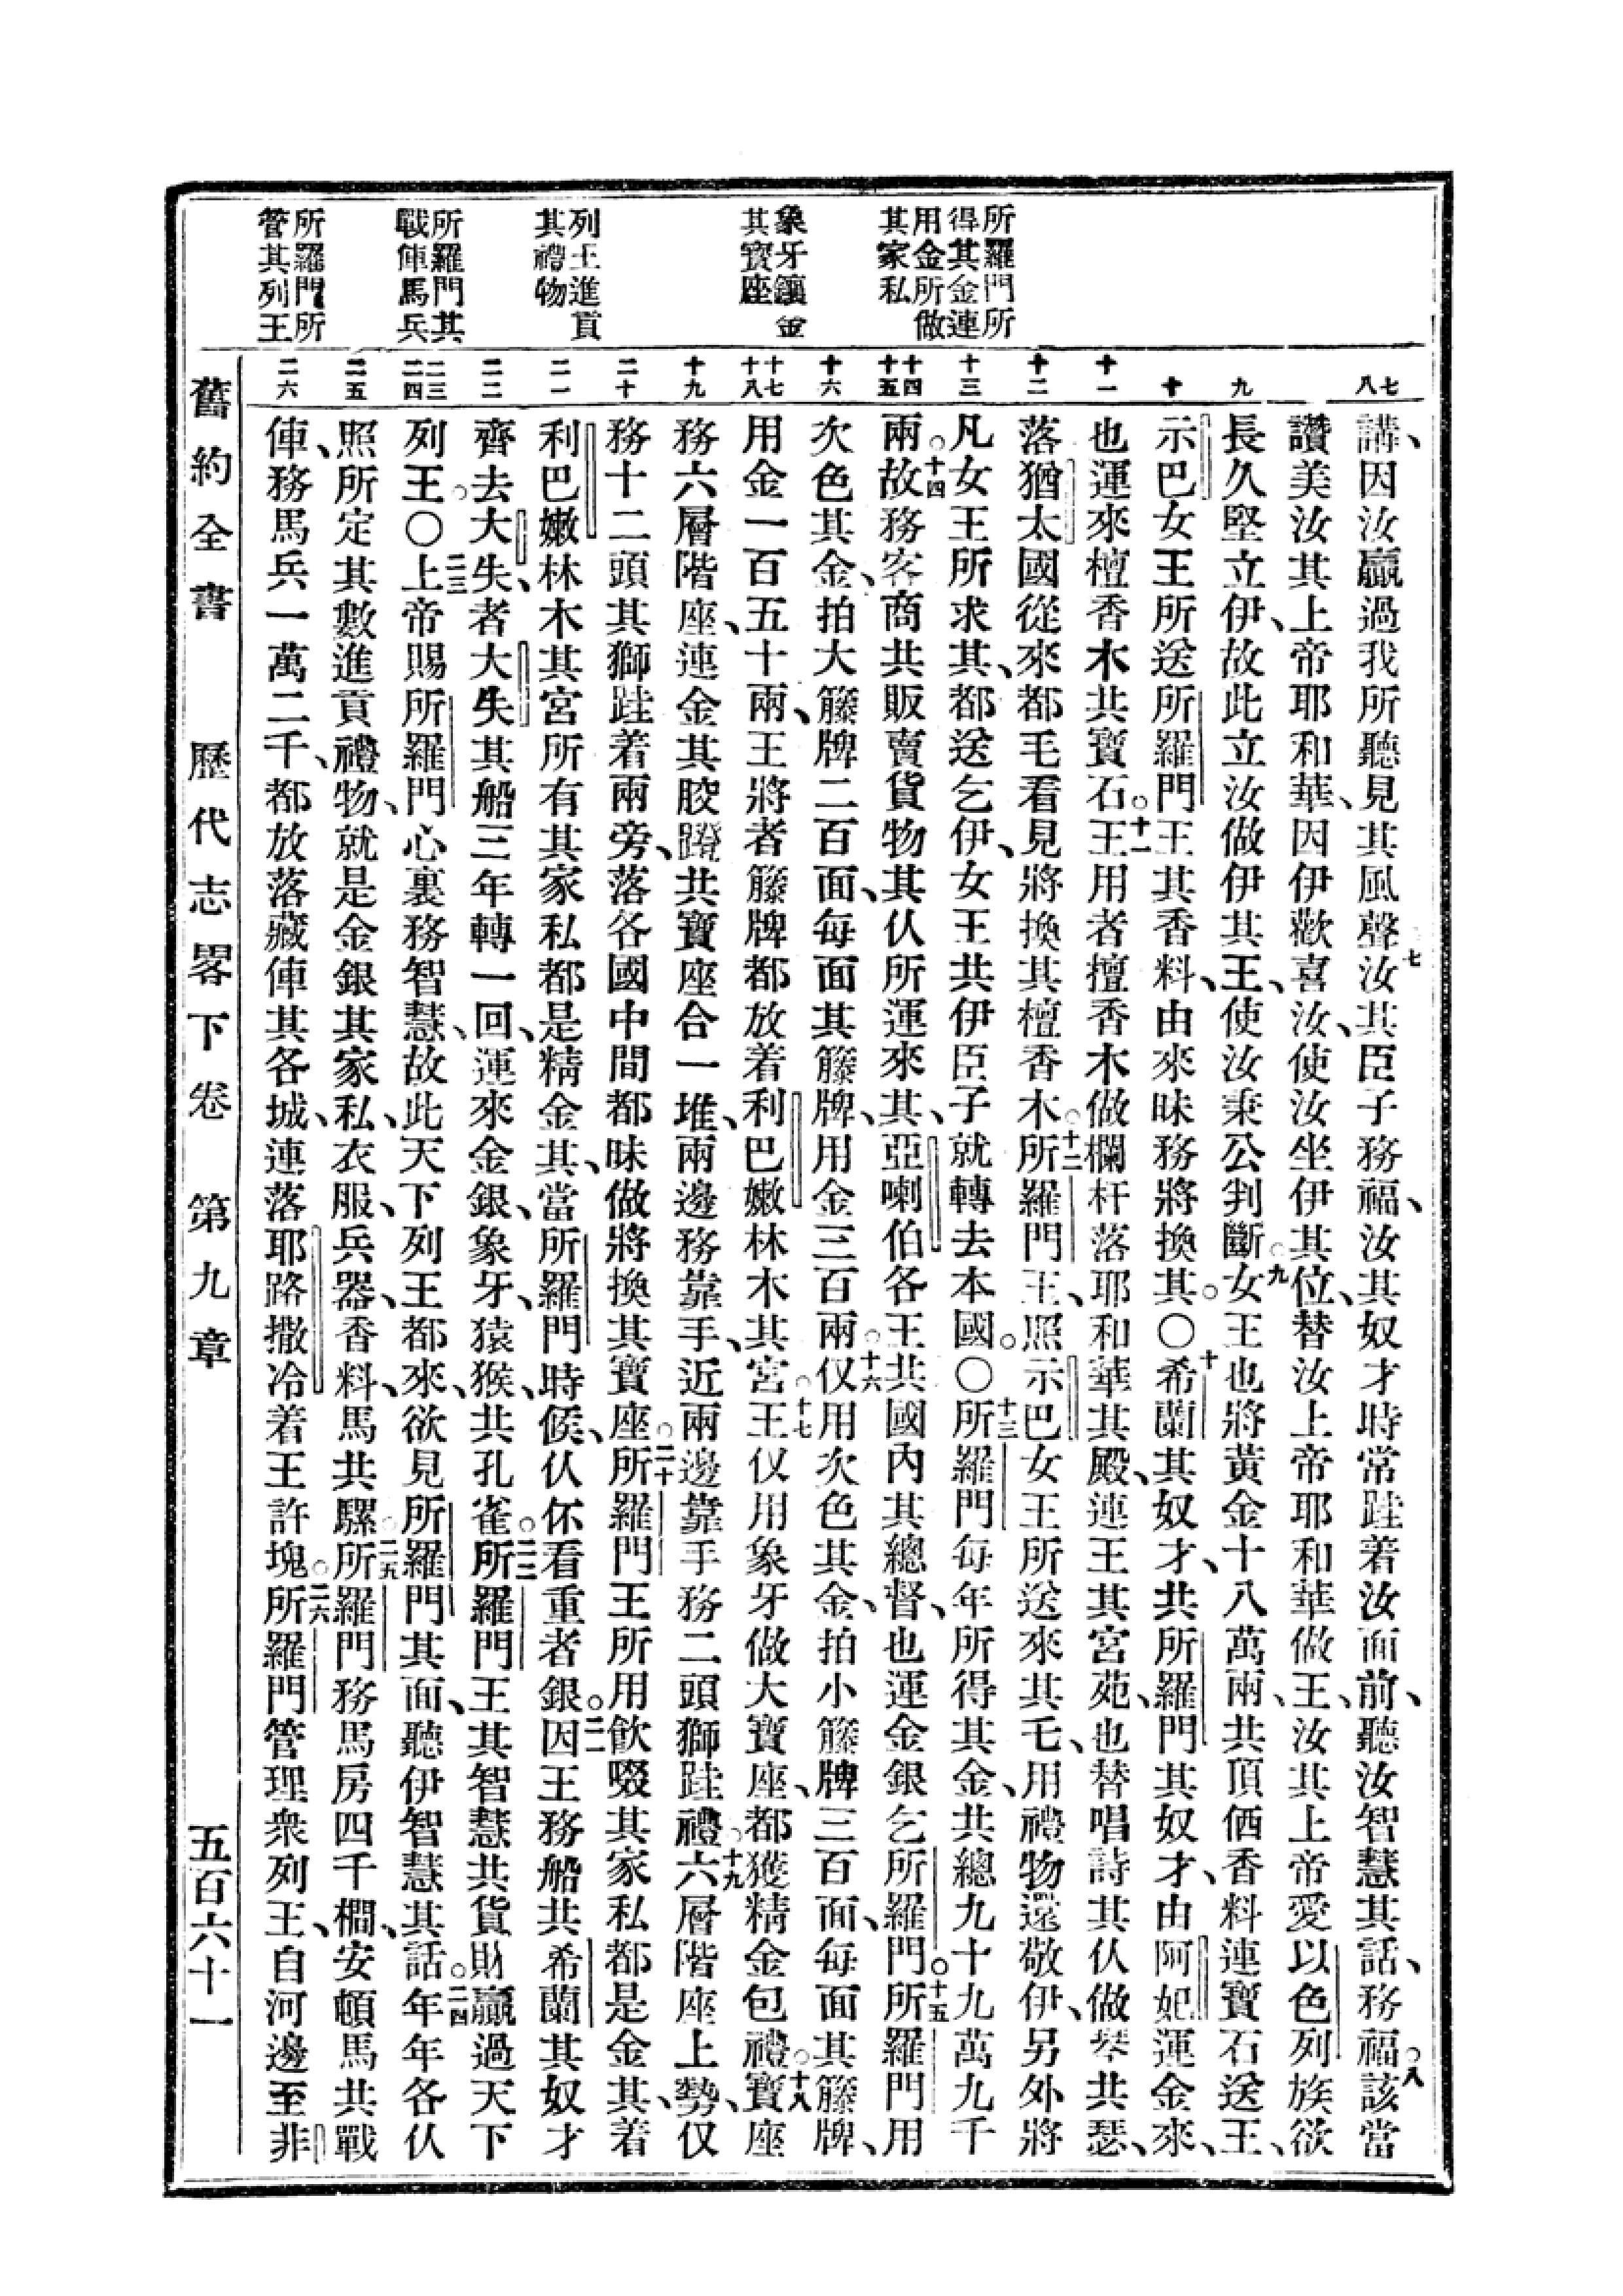 所羅門所
得其金連
用金所做
其家私
象牙鑲金
其寶座
列王進貢
其禮物
所羅門其
戰俥馬兵
所羅門所
管其列王
七
八
九
十
十一
十二
十三
十四
十五
十六
十七
十八
十九
二十
二一
二二
二三
二四
二五
二六
講、因汝贏過我所聽見其風聲七汝其臣子務福、汝其奴才時常跬着汝面前、聽汝智慧其話、務福。八該當
讚美汝其上帝耶和華、因伊歡喜汝、使汝坐伊其位、替汝上帝耶和華做王、汝其上帝愛以色列族欲
長久堅立伊、故此立汝做伊其王、使汝秉公判斷。九女王也將黃金十八萬兩、共頂㒇香料連寶石送王、
示巴女王所送所羅門王其香料、由來昧務將換其。〇十希蘭其奴才、共所羅門其奴才、由阿妃運金來、
也運來檀香木共寶石。十一王用者檀香木做欄杆落耶和華其殿、連王其宮苑、也替唱詩其仈做琴共瑟、
落猶太國從來都毛看見將換其檀香木。十二所羅門王、照示巴女王所送來其毛、用禮物還敬伊、另外將
凡女王所求其、都送乞伊、女王共伊臣子就轉去本國。〇十三所羅門每年所得其金、共總九十九萬九千
兩。十四故務客商共販賣貨物其仈所運來其、亞喇伯各王共國內其總督、也運金銀乞所羅門。十五所羅門用
次色其金、拍大籐牌二百面、每面其籐牌、用金三百兩。十六仅用次色其金、拍小籐牌三百面、每面其籐牌、
用金一百五十兩、王將者籐牌都放着利巴嫩林木其宮。十七王仅用象牙做大寶座、都獲精金包禮。十八寶座
務六層階座、連金其骹蹬共寶座合一堆、兩邊務靠手、近兩邊靠手務二頭獅跬禮。十九六層階座上勢、仅
務十二頭其獅跬着兩旁、落各國中間都昧做將換其寶座。二十所羅門王所用飲啜其家私都是金其、着
利巴嫩林木其宮所有其家私都是精金其、當所羅門時候、仈伓看重者銀。二一因王務船共希蘭其奴才
齊去大失、者大失其船三年轉一回、運來金銀、象牙、猿猴、共孔雀。二二所羅門王其智慧共貨財贏過天下
列王。〇二三上帝賜所羅門心裏務智慧、故此天下列王都來、欲見所羅門其面、聽伊智慧其話。二四年年各仈
照所定其數進貢禮物、就是金銀其家私、衣服、兵器、香料、馬共騾。二五所羅門務馬房四千櫩、安頓馬共戰
俥、務馬兵一萬二千、都放落藏俥其各城、連落耶路撒冷着王許塊。二六所羅門管理衆列王、自河邊至非
舊約全書 歷代志畧下卷 第九章 五百六十一